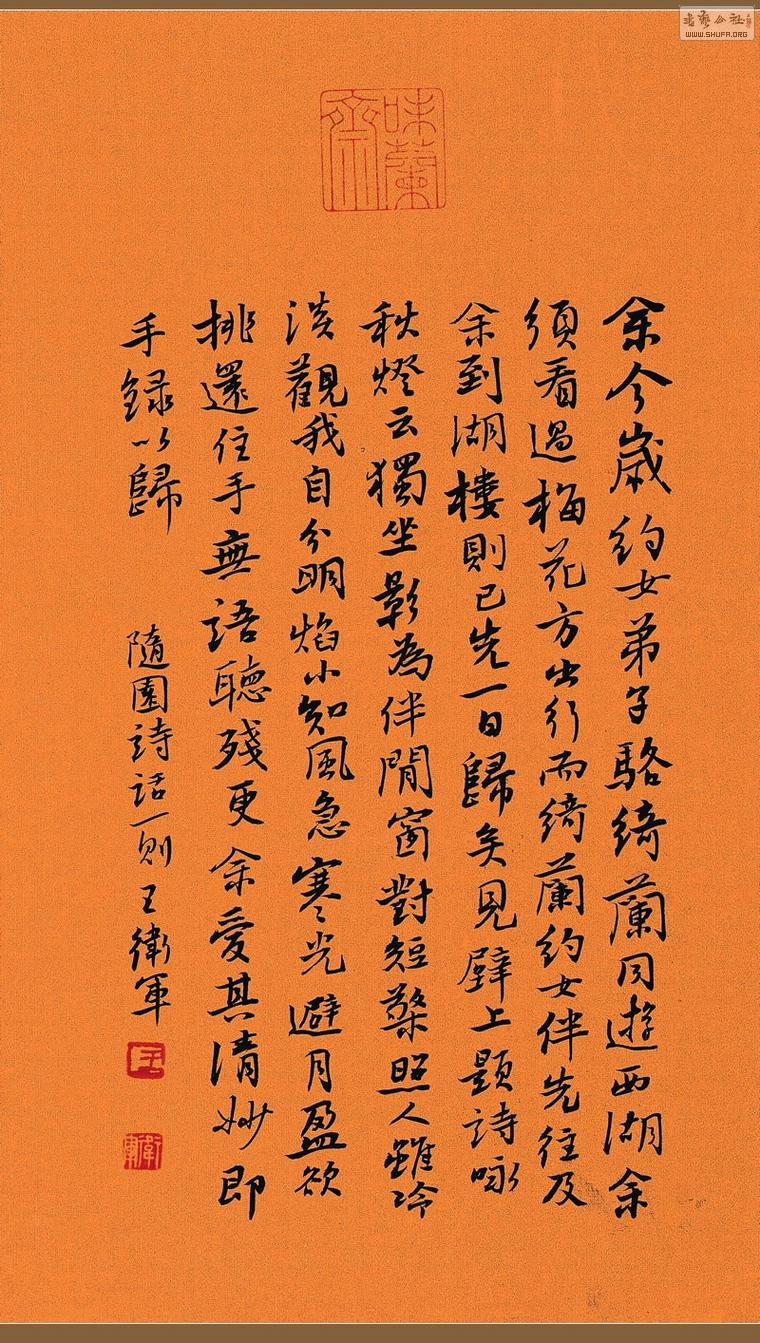 余今歲約女弟子駱綺蘭同遊西湖余
須看過梅花方出行而綺蘭約女伴先往及
余到湖樓則已先一日歸矣見壁上題詩咏
秋燈云獨坐影為伴閒窗對短檠照人雖冷
淡觀我自分明焰小知風急寒光避月盈欲
挑還住手無語聽殘更余愛其清妙即
手録以歸
隨園詩話一則王衛軍
味蘭齋
衛軍
WWW.SHUFA.ORG